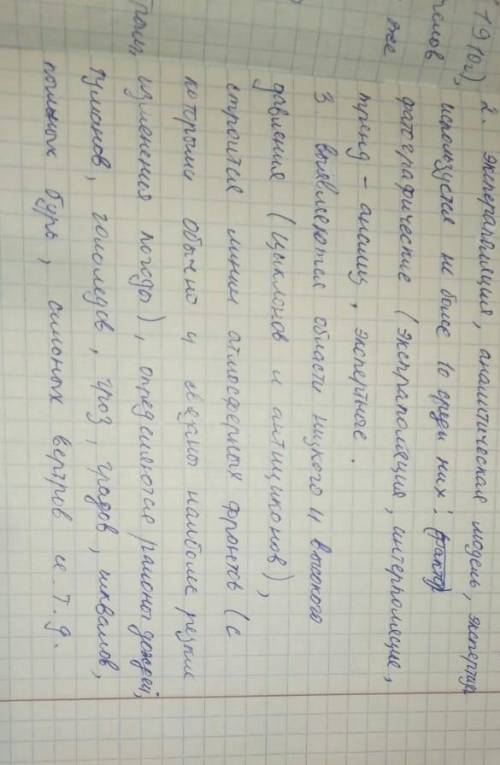 1910г),
числов
же
2. экстраполяция, аналитическая модель, эксперт
используется не более 10 среди них: фактог
фатографические (экстраполяция, интерполяция,
тренд - анализ, экспертное.
3 выявляются области низкого и высокого
давления (циклонов и антициконов),
строится линии атмосферных фронтов (с
которыми обычно и связаны наиболее резкие
изменения погоды), определяются районы дождей,
туманов, гололедов, гроз, градов, шквалов,
пыльных бурь, сильных вертров и.т.д.